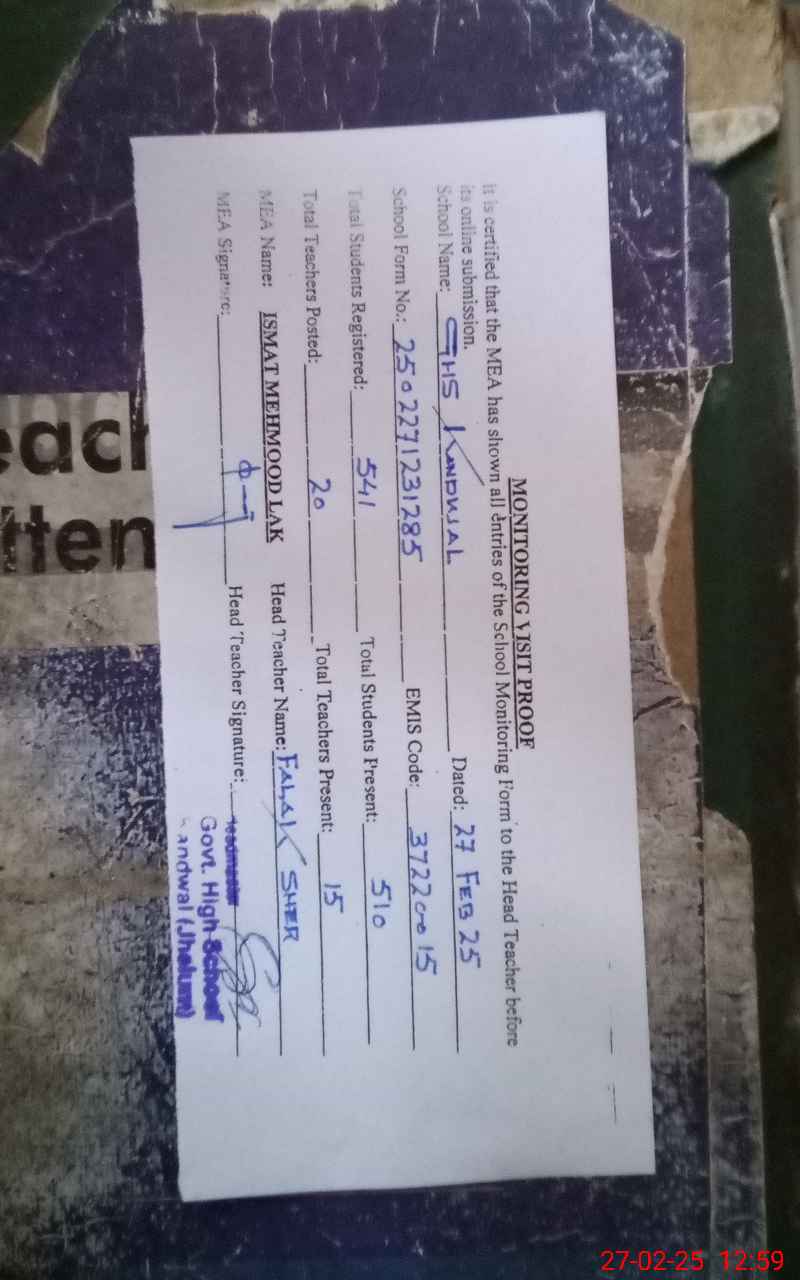 MONITORING VISIT PROOF
It is certified that the MEA has shown all entries of the School Monitoring Form to the Head Teacher before
its online submission.
School Name: GHS KANDWAL Dated: 27 FEB 25
School Form No.: 2502271231285 EMIS Code: 37220015
Total Students Registered: 541 Total Students Present: 510
Total Teachers Posted: 20 Total Teachers Present: 15
MEA Name: ISMAT MEHMOOD LAK Head Teacher Name: FALAK SHER
MEA Signature: Head Teacher Signature:
Headmaster
Govt. High School
Kandwal (Jhelum)
each
tten
27-02-25 12:59